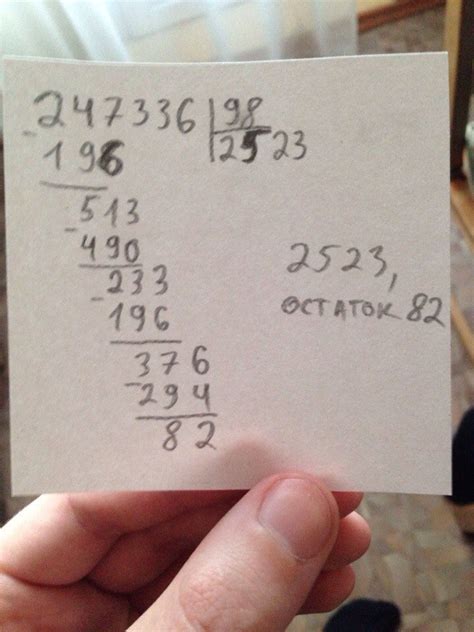 247336 98
- 196 2523
513
- 490
233
- 196
376
- 294
82
2523,
остаток 82